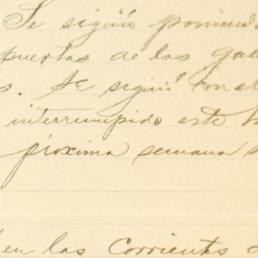 Se siguió poniendo
puertas de las
s. Se siguió con el
interrumpido este
próxima semana s
en las Corrientes d